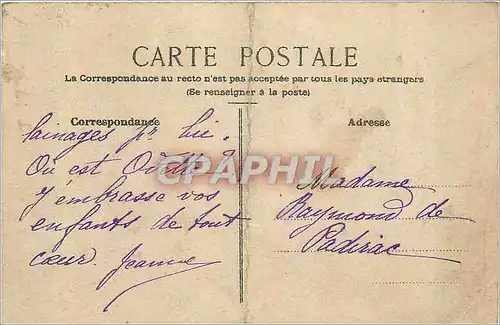 CARTE POSTALE
La Correspondance au recto n'est pas acceptée par tous les pays etrangers
(Se renseigner à la poste)
Correspondance
lainages pr lui.
Où est Odette ?
J'embrasse vos
enfants de tout
cœur. Jeanne
Adresse
Madame
Raymond de
Padirac
CPAPHIL